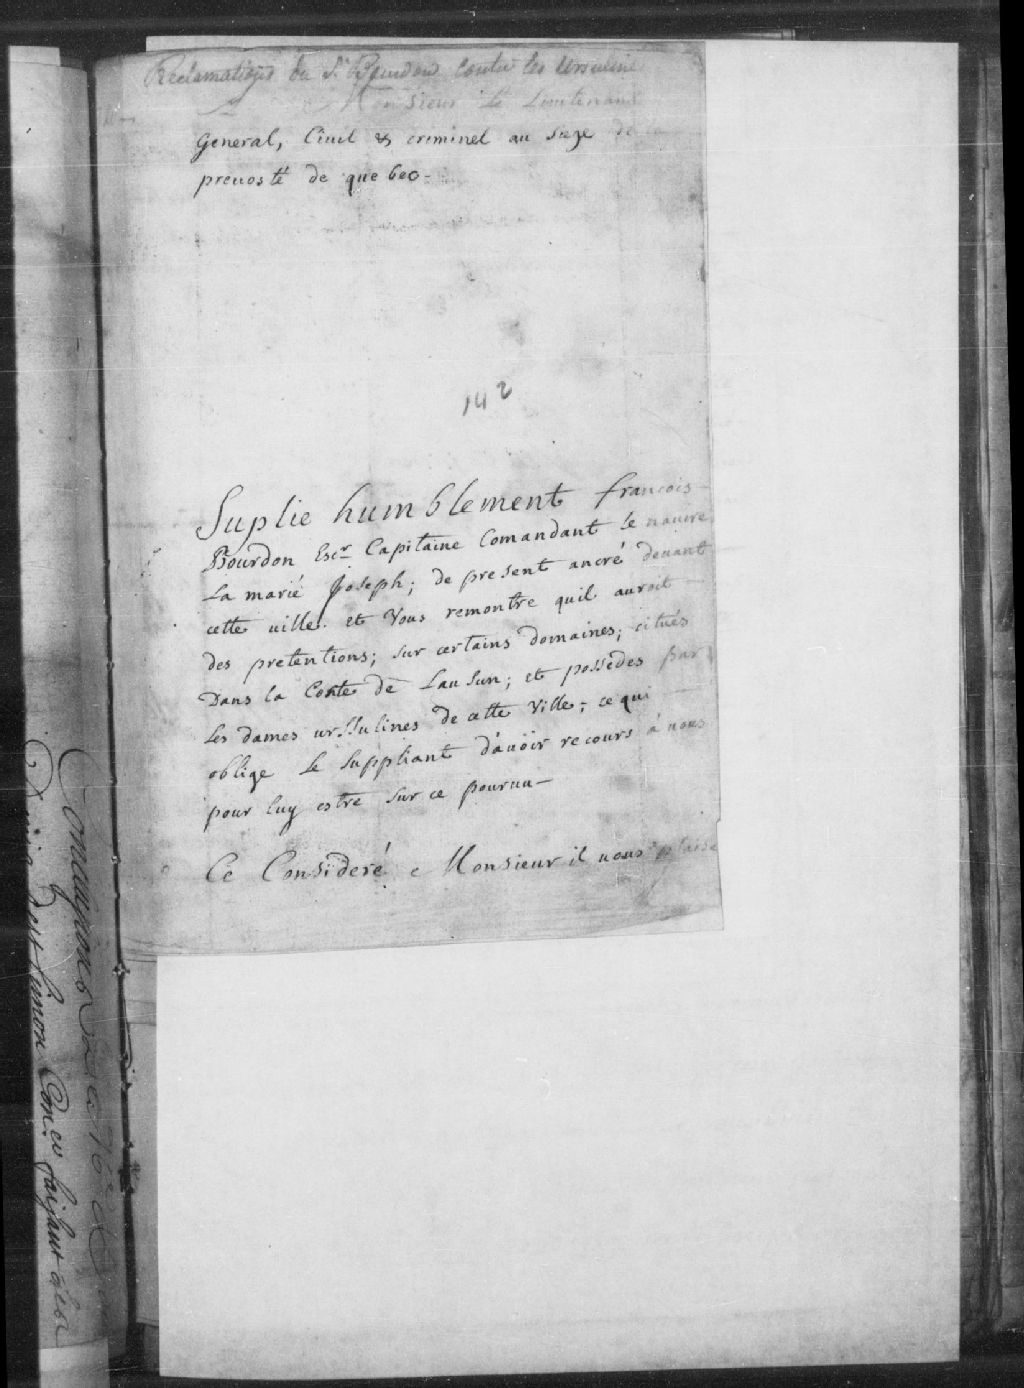 Reclamations du Sr Bourdon contre les Ursuline
Monsieur le Lieutenant
General, Ciuil & criminel au siege de la
preuosté de quebec-
142
Suplie humblement francois-
Bourdon Escr Capitaine Comandant le nauire
La marié Joseph; de present ancré deuant
cette uille. et Vous remontre quil auroit
des pretentions; sur certains domaines; citués
Dans la Conte de Lausun; et possèdes par
Les dames urssulines de cette Ville; ce qui
oblige le suppliant d'auoir recours à uous
pour luy estre sur ce pouruu-
Ce Consideré e Monsieur il uous plaise